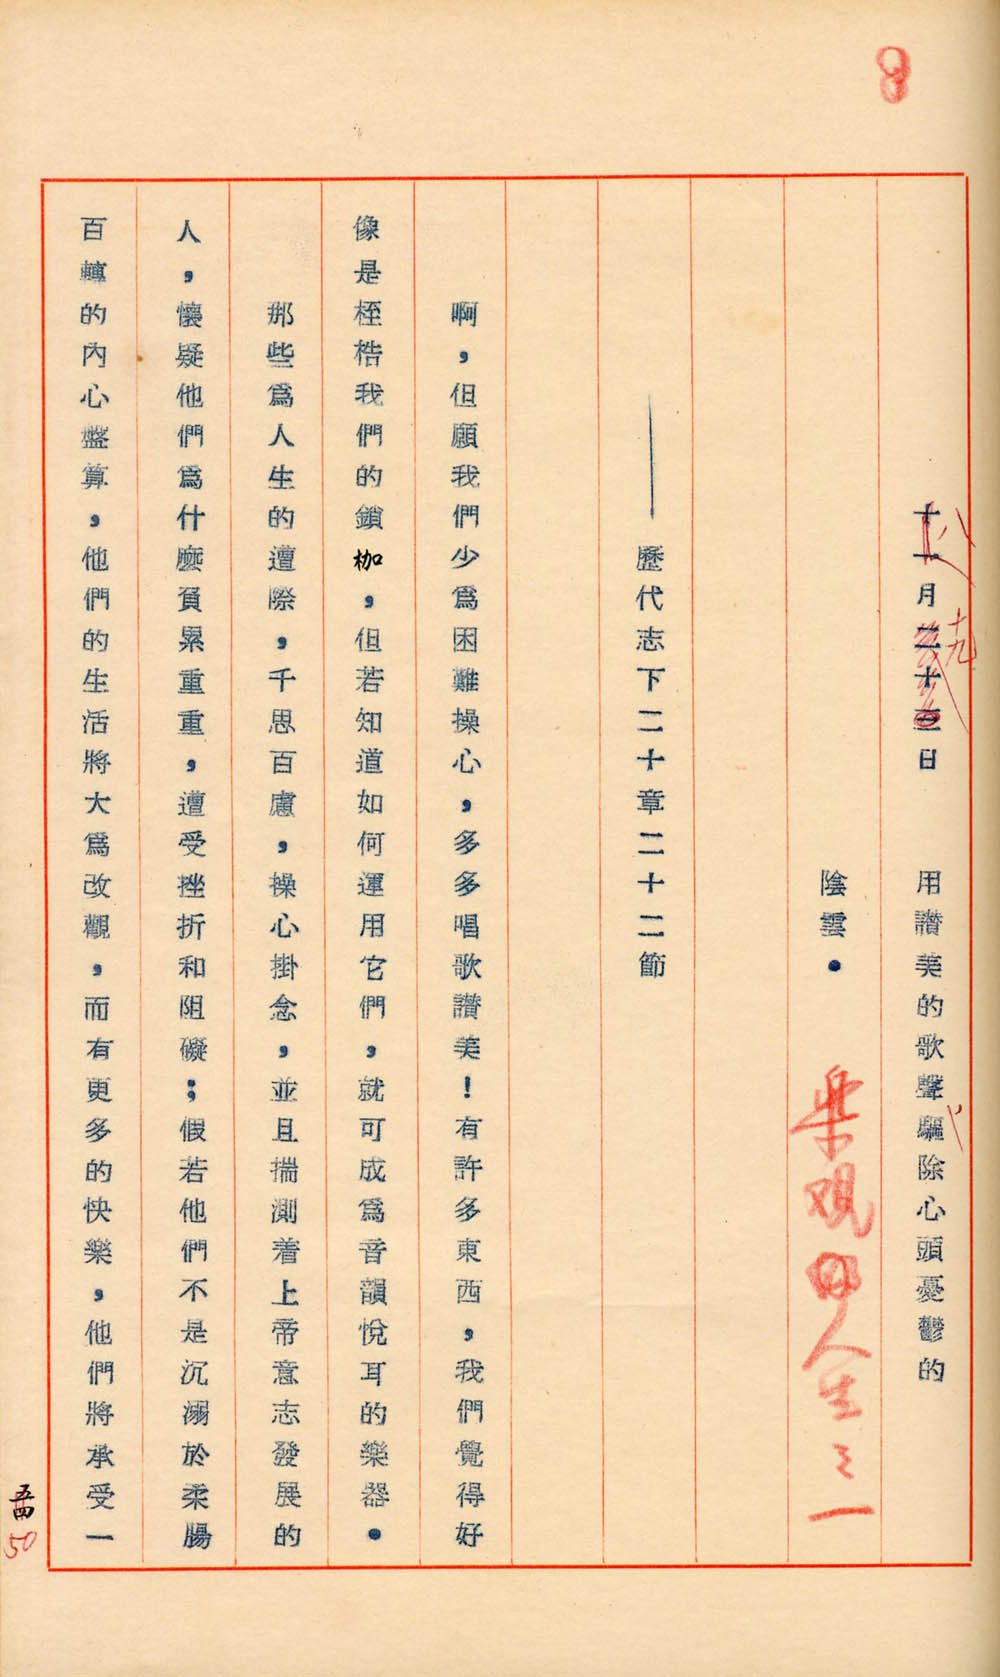 8
十一月二十三日　用讃美的歌聲驅除心頭憂鬱的
八
十九
陰雲。
樂观的人生之一
——歷代志下二十章二十二節
啊，但願我們少爲困難操心，多多唱歌讃美！有許多東西，我們覺得好
像是桎梏我們的鎖枷，但若知道如何運用它們，就可成爲音韻悅耳的樂器。
那些爲人生的遭際，千思百慮，操心掛念，並且揣測着上帝意志發展的
人，懷疑他們爲什麼負累重重，遭受挫折和阻礙；假若他們不是沉溺於柔腸
百轉的內心盤算，他們的生活將大爲改觀，而有更多的快樂，他們將承受一
50